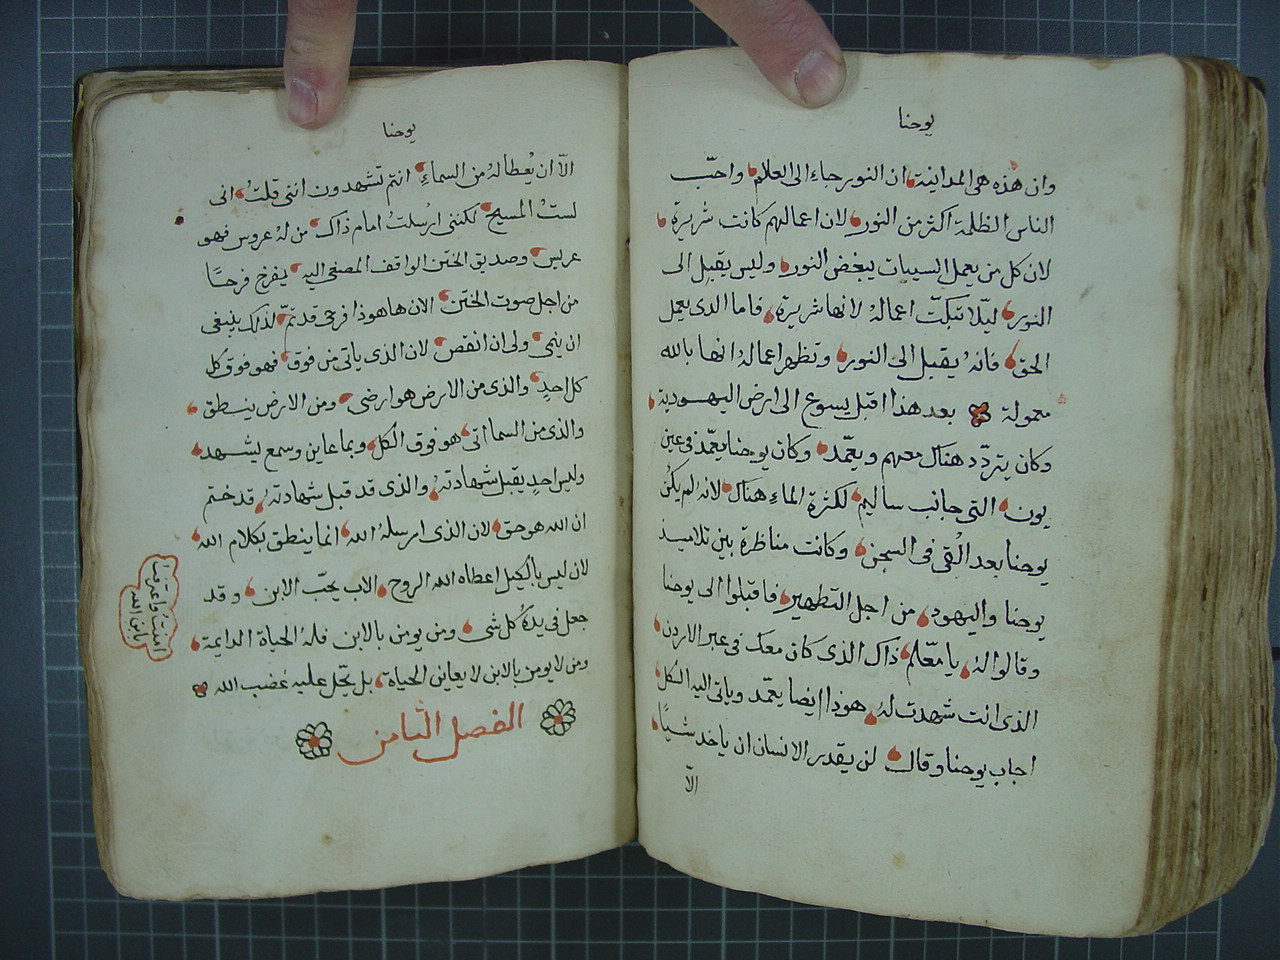 يوحنا
وان هذه هى المداينة ان النور جاء الى العلام واحبّ
الناس الظلمة اكثر من النور لان اعمالهم كانت شريرة
لان كل من يعمل السييات يبغض النور وليس يقبل الى
النور ليّلا تبكّت اعمالهُ لانها شريرة فاما الدى يعمل
الحق فانهُ يقبل الى النور وتظهر اعمالهُ انها بالله
معمولة بعد هذا اقبل يسوع الى ارض اليهودية
وكان يتردّد هناك معهم ويعمّد وكان يوحنا يعمّد فى عين
يون التى جانب ساليم لكثرة الماء هناك لانهُ لم يكُن
يوحنا بعد اُلقى فى السجن وكانت مناظرة بين تلاميذ
يوحنا واليهود من اجل التطهير فاقبلوا الى يوحنا
وقالوا لهُ يا معّلم ذاك الذى كان معك فى عبر الاردن
الذى انت شهدت لهُ هوذا ايضا يعمّد وياتى اليه الكل
اجاب يوحنا وقال لن يقدر الانسان ان ياخد شيًا
الّا
يوحنا
الّا ان يُعطا لهُ من السماءِ انتم تشهدون اننى قلتُ انى
لستُ المسيح لكننى ارسلتُ امام ذاك من لهُ عروس فهو
عريس وصديق الختن الواقف المصغى اليه يفرح فرحًا
من اجل صوت الختن الان هاهوذا فرحى قد تمّ لذلك ينبغى
ان ينمى ولى ان انقص لان الذى ياتى من فوق فهو فوق كل
كل احدٍ والذى من الارض هو ارضى ومن الارض ينطق
والذى من السما اتى هو فوق الكل وبما عاين وسمع يشهد
وليس احدٍ يقبل شهادتهُ والذى قد قبل شهادتهُ قد ختم
ان الله هو حق لان الذى ارسلهُ الله انما ينطق بكلام الله
لان ليس بالكيل اعطاه الله الروح الاب يحّب الابن وقد
جعل فى يدهُ كل شى ومن يومن بالابن فلهُ الحياة الدايمة
ومن لا يومن بالابن لا يعاين الحياة بل يحّل عليه غضب الله
الفصل الثامن
امنت واعترفت
يابن الله